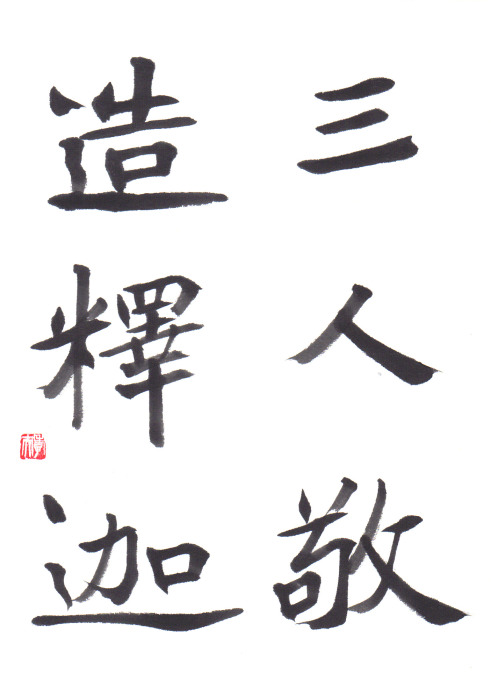 三人敬
造釋迦